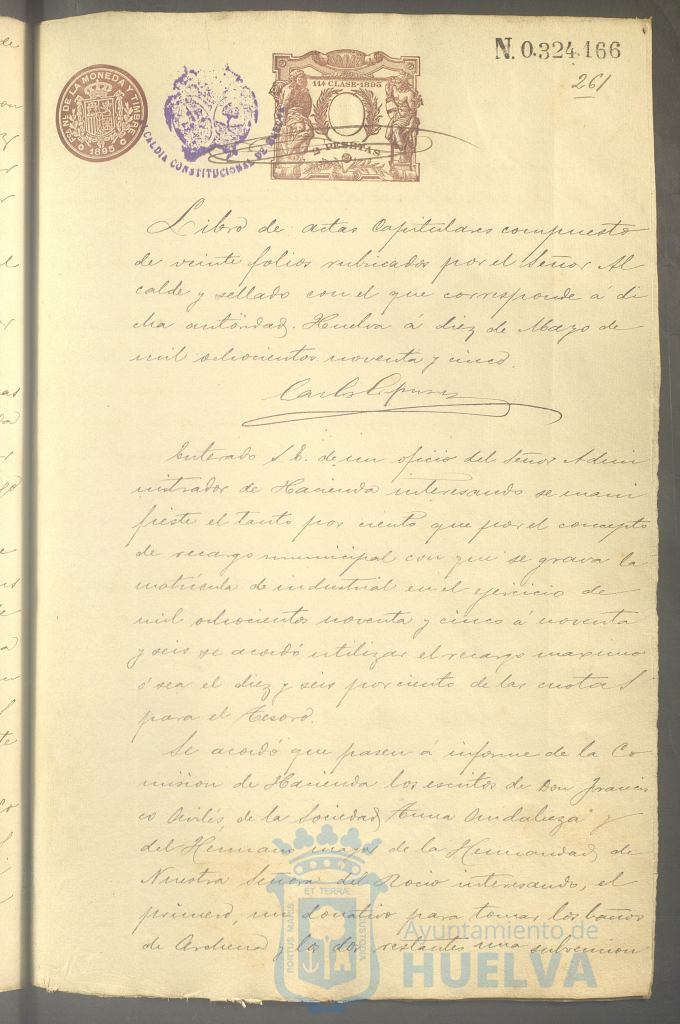 N. 0.324,166
261
FCA. NL. DE LA MONEDA Y TIMBRE
1895
ALCALDIA CONSTITUCIONAL DE HUELVA
11ª CLASE-1895
2 PESETAS
Libro de actas Capitulares compuesto
de veinte folios rubricados por el Señor Al
calde y sellado con el que corresponde á di
cha autoridad. Huelva á diez de Mayo de
mil ochocientos noventa y cinco.
Enterado S. E. de un oficio del Señor Admi
nistrador de Hacienda interesando se mani
fieste el tanto por ciento que por el concepto
de recargo municipal con que se grava la
matrícula de industrial en el ejercicio de
mil ochocientos noventa y cinco á noventa
y seis se acordó utilizar el recargo maximo
ó sea el diez y seis por ciento de las cuotas
para el Tesoro.
Se acordó que pasen á informe de la Co
mision de Hacienda los escritos de Don Francis
co Avilés de la Sociedad Andaluza y
del Hermano mayor de la Hermandad de
Nuestra Señora del Rocio interesando, el
primero, un donativo para tomar los baños
de Archena y los dos restantes una subvencion
ET TERRÆ
PORTUS MARIS
CUSTODIA
Ayuntamiento de
HUELVA